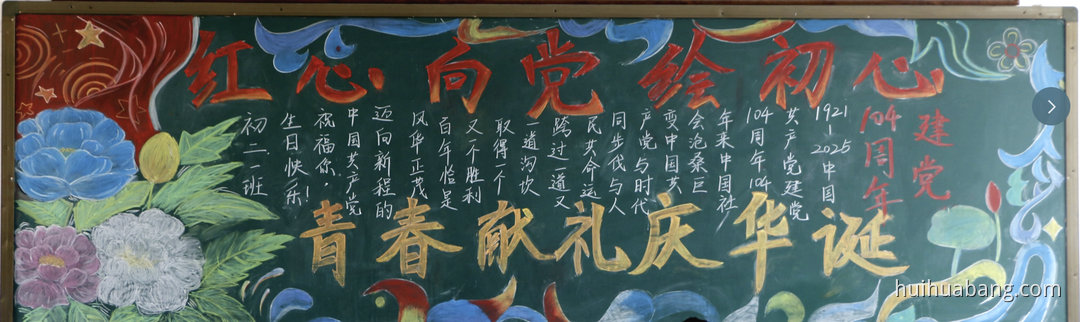 红心向党绘初心
建党
104周年
1921-2025中国
共产党建党
104周年104
年来中国社
会沧桑巨
变中国共
产党与时代
同步伐与人
民共命运
跨过一道又
一道沟坎
取得一个
又一个胜利
百年恰是
风华正茂
迈向新程的
中国共产党
祝福你，
生日快乐！
初二.一班
青春献礼庆华诞
huihuabang.com